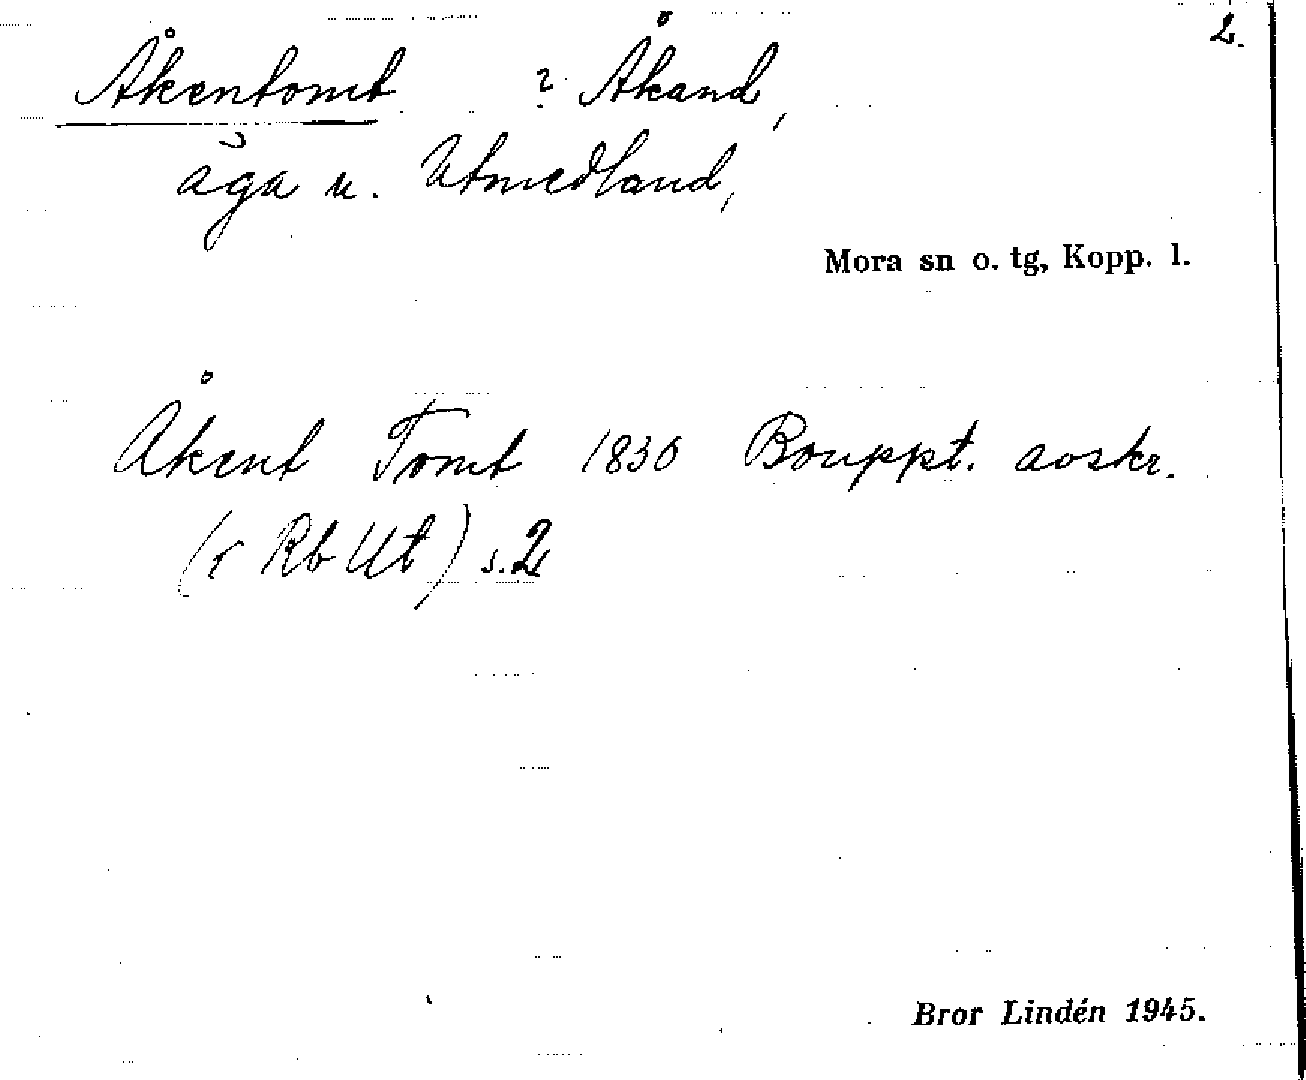 2.
Åkentomt ? Åkand,
äga u. Utmedland,
Mora sn o. tg, Kopp. l.
Åkent Tomt 1830 Bouppt. avskr.
(r Rb Ut) s. 2
Bror Lindén 1945.